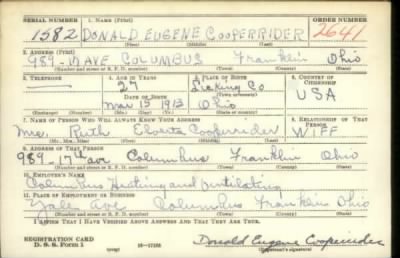 SERIAL NUMBER 1. NAME (Print) ORDER NUMBER
1582 DONALD EUGENE COOPERRIDER 2641
(First) (Middle) (Last)
2. ADDRESS (Print)
989- AVE COLUMBUS Franklin Ohio
(Number and street or R. F. D. number) (Town) (County) (State)
3. TELEPHONE 4. AGE IN YEARS 5. PLACE OF BIRTH 6. COUNTRY OF CITIZENSHIP
— 27 Licking Co
DATE OF BIRTH (Town or county) USA
Mar 15 1913 Ohio
(Exchange) (Number) (Mo.) (Day) (Yr.) (State or country)
7. NAME OF PERSON WHO WILL ALWAYS KNOW YOUR ADDRESS 8. RELATIONSHIP OF THAT PERSON
Mrs. Ruth Cooperrider WIFE
(Mr., Mrs., Miss) (First) (Middle) (Last)
9. ADDRESS OF THAT PERSON
989-17th av Columbus Franklin Ohio
(Number and street or R. F. D. number) (Town) (County) (State)
10. EMPLOYER'S NAME
Columbus Heating and Ventilating
11. PLACE OF EMPLOYMENT OR BUSINESS
Yale Ave Columbus Franklin Ohio
(Number and street or R. F. D. number) (Town) (County) (State)
I AFFIRM THAT I HAVE VERIFIED ABOVE ANSWERS AND THAT THEY ARE TRUE.
REGISTRATION CARD
D. S. S. Form 1 (over) 16—17105 Donald Eugene Cooperrider
(Registrant's signature)